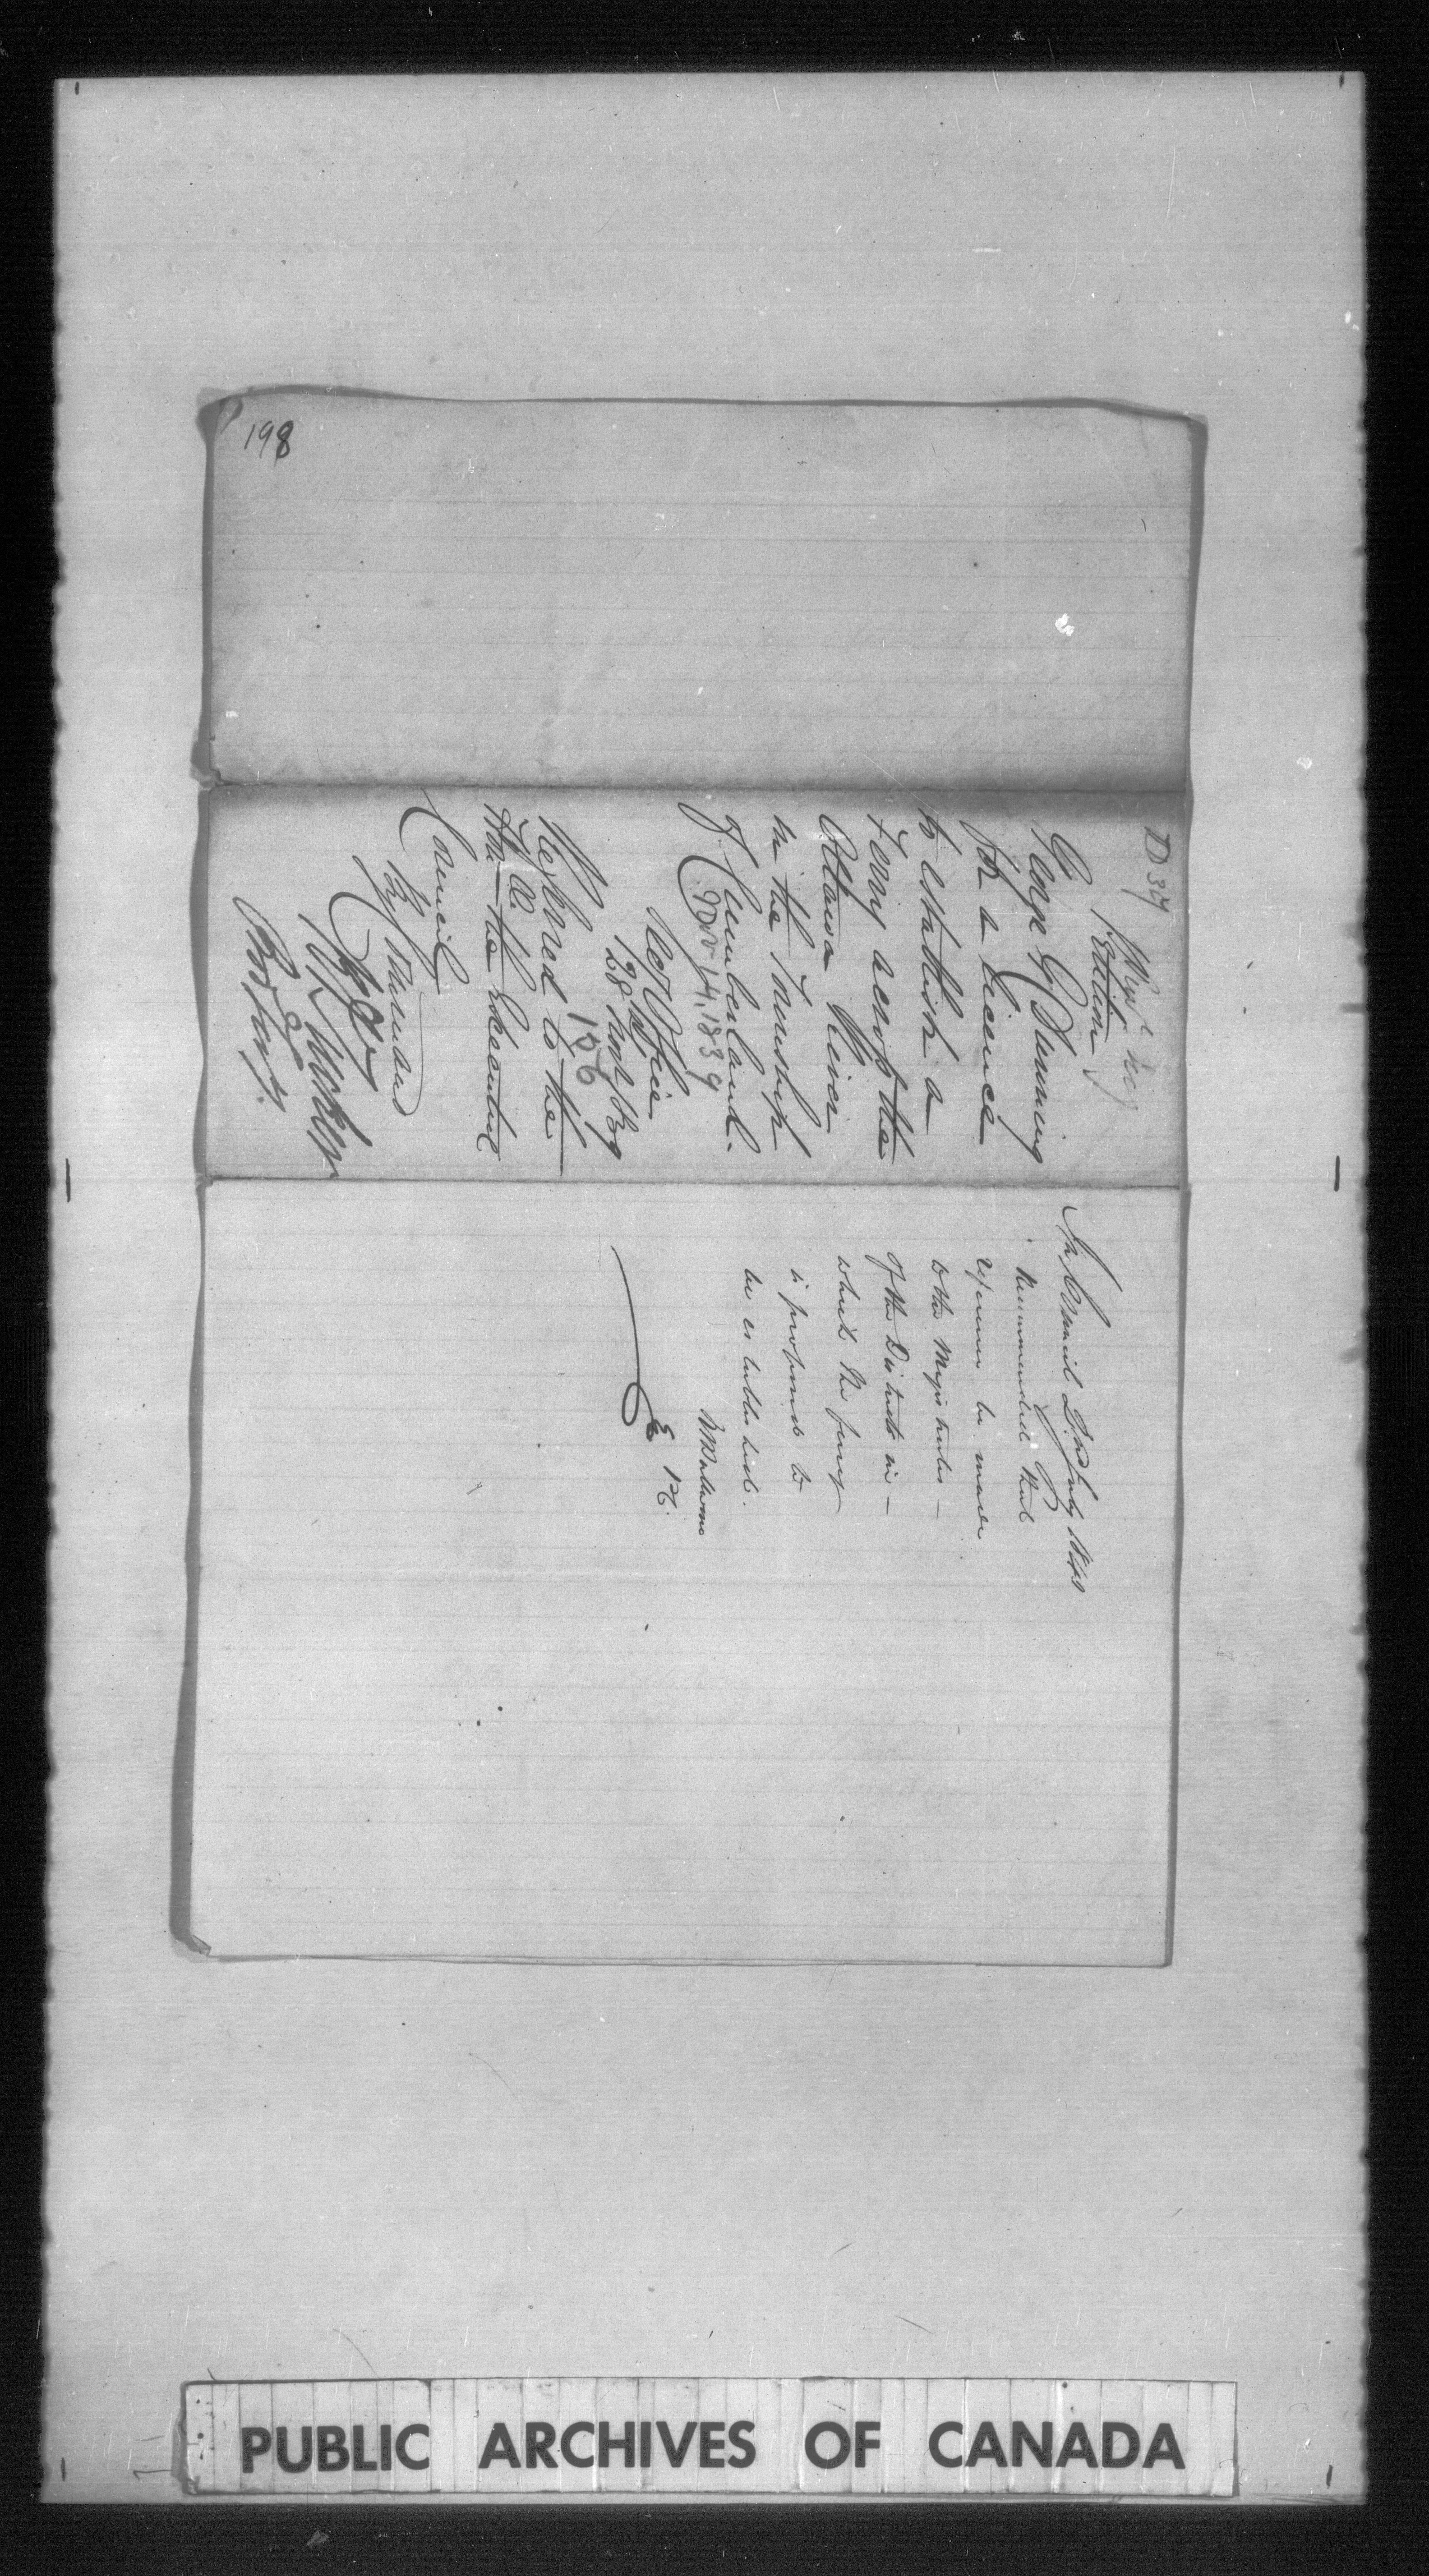 198
D 39
Petition
George G Dunning
for a licence
to establish a
Ferry across the
Ottawa River
in the Township
of Cumberland.
Nov 14, 1839
Rec Office
28 Nov /39
186
Referred to the
Hon the Executive
Council
By Command
In Council 2d July 1840
Recommended that
reference be made
to the Magistrates
of the District in
which the ferry
is proposed to
be established.
PUBLIC ARCHIVES OF CANADA